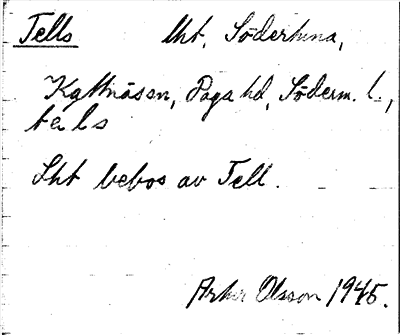 Tells lht, Södertuna,
Kattnäsen, Daga hd, Söderm. l.,
te ls
Lht bebos av Tell.
Olsson 1945.